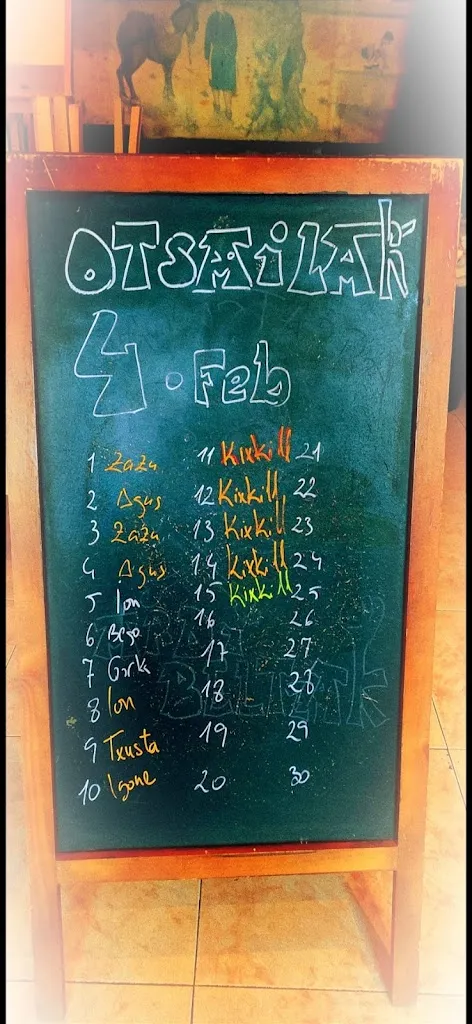 OTSAiLAK
4. Feb
1 Zazu 11 Kixkill 21
2 Agus 12 Kixkill 22
3 Zazu 13 Kixkill 23
4 Agus 14 Kixkill 24
5 Ion 15 Kixkill 25
6 Bego 16 26
7 Gorka 17 27
8 Ion 18 28
9 Txusta 19 29
10 Igone 20 30